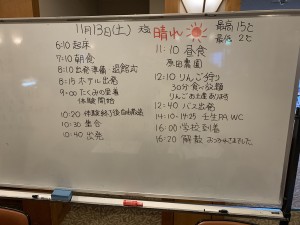 11月13日(土) 天気 晴れ 最高 15℃
最低 2℃
6:10 起床
7:10 朝食
8:10 出発準備・退館式
8:15 ホテル出発
9:00 たくみの里着
体験開始
10:20 体験終了後自由散策
10:30 集合
10:40 出発
11:10 昼食
原田農園
12:10 りんご狩り
30分食べ放題
りんごお土産あります
12:40 バス出発
14:10-14:25 壬生PA WC
16:00 学校到着
16:20 解散 おつかれさまでした